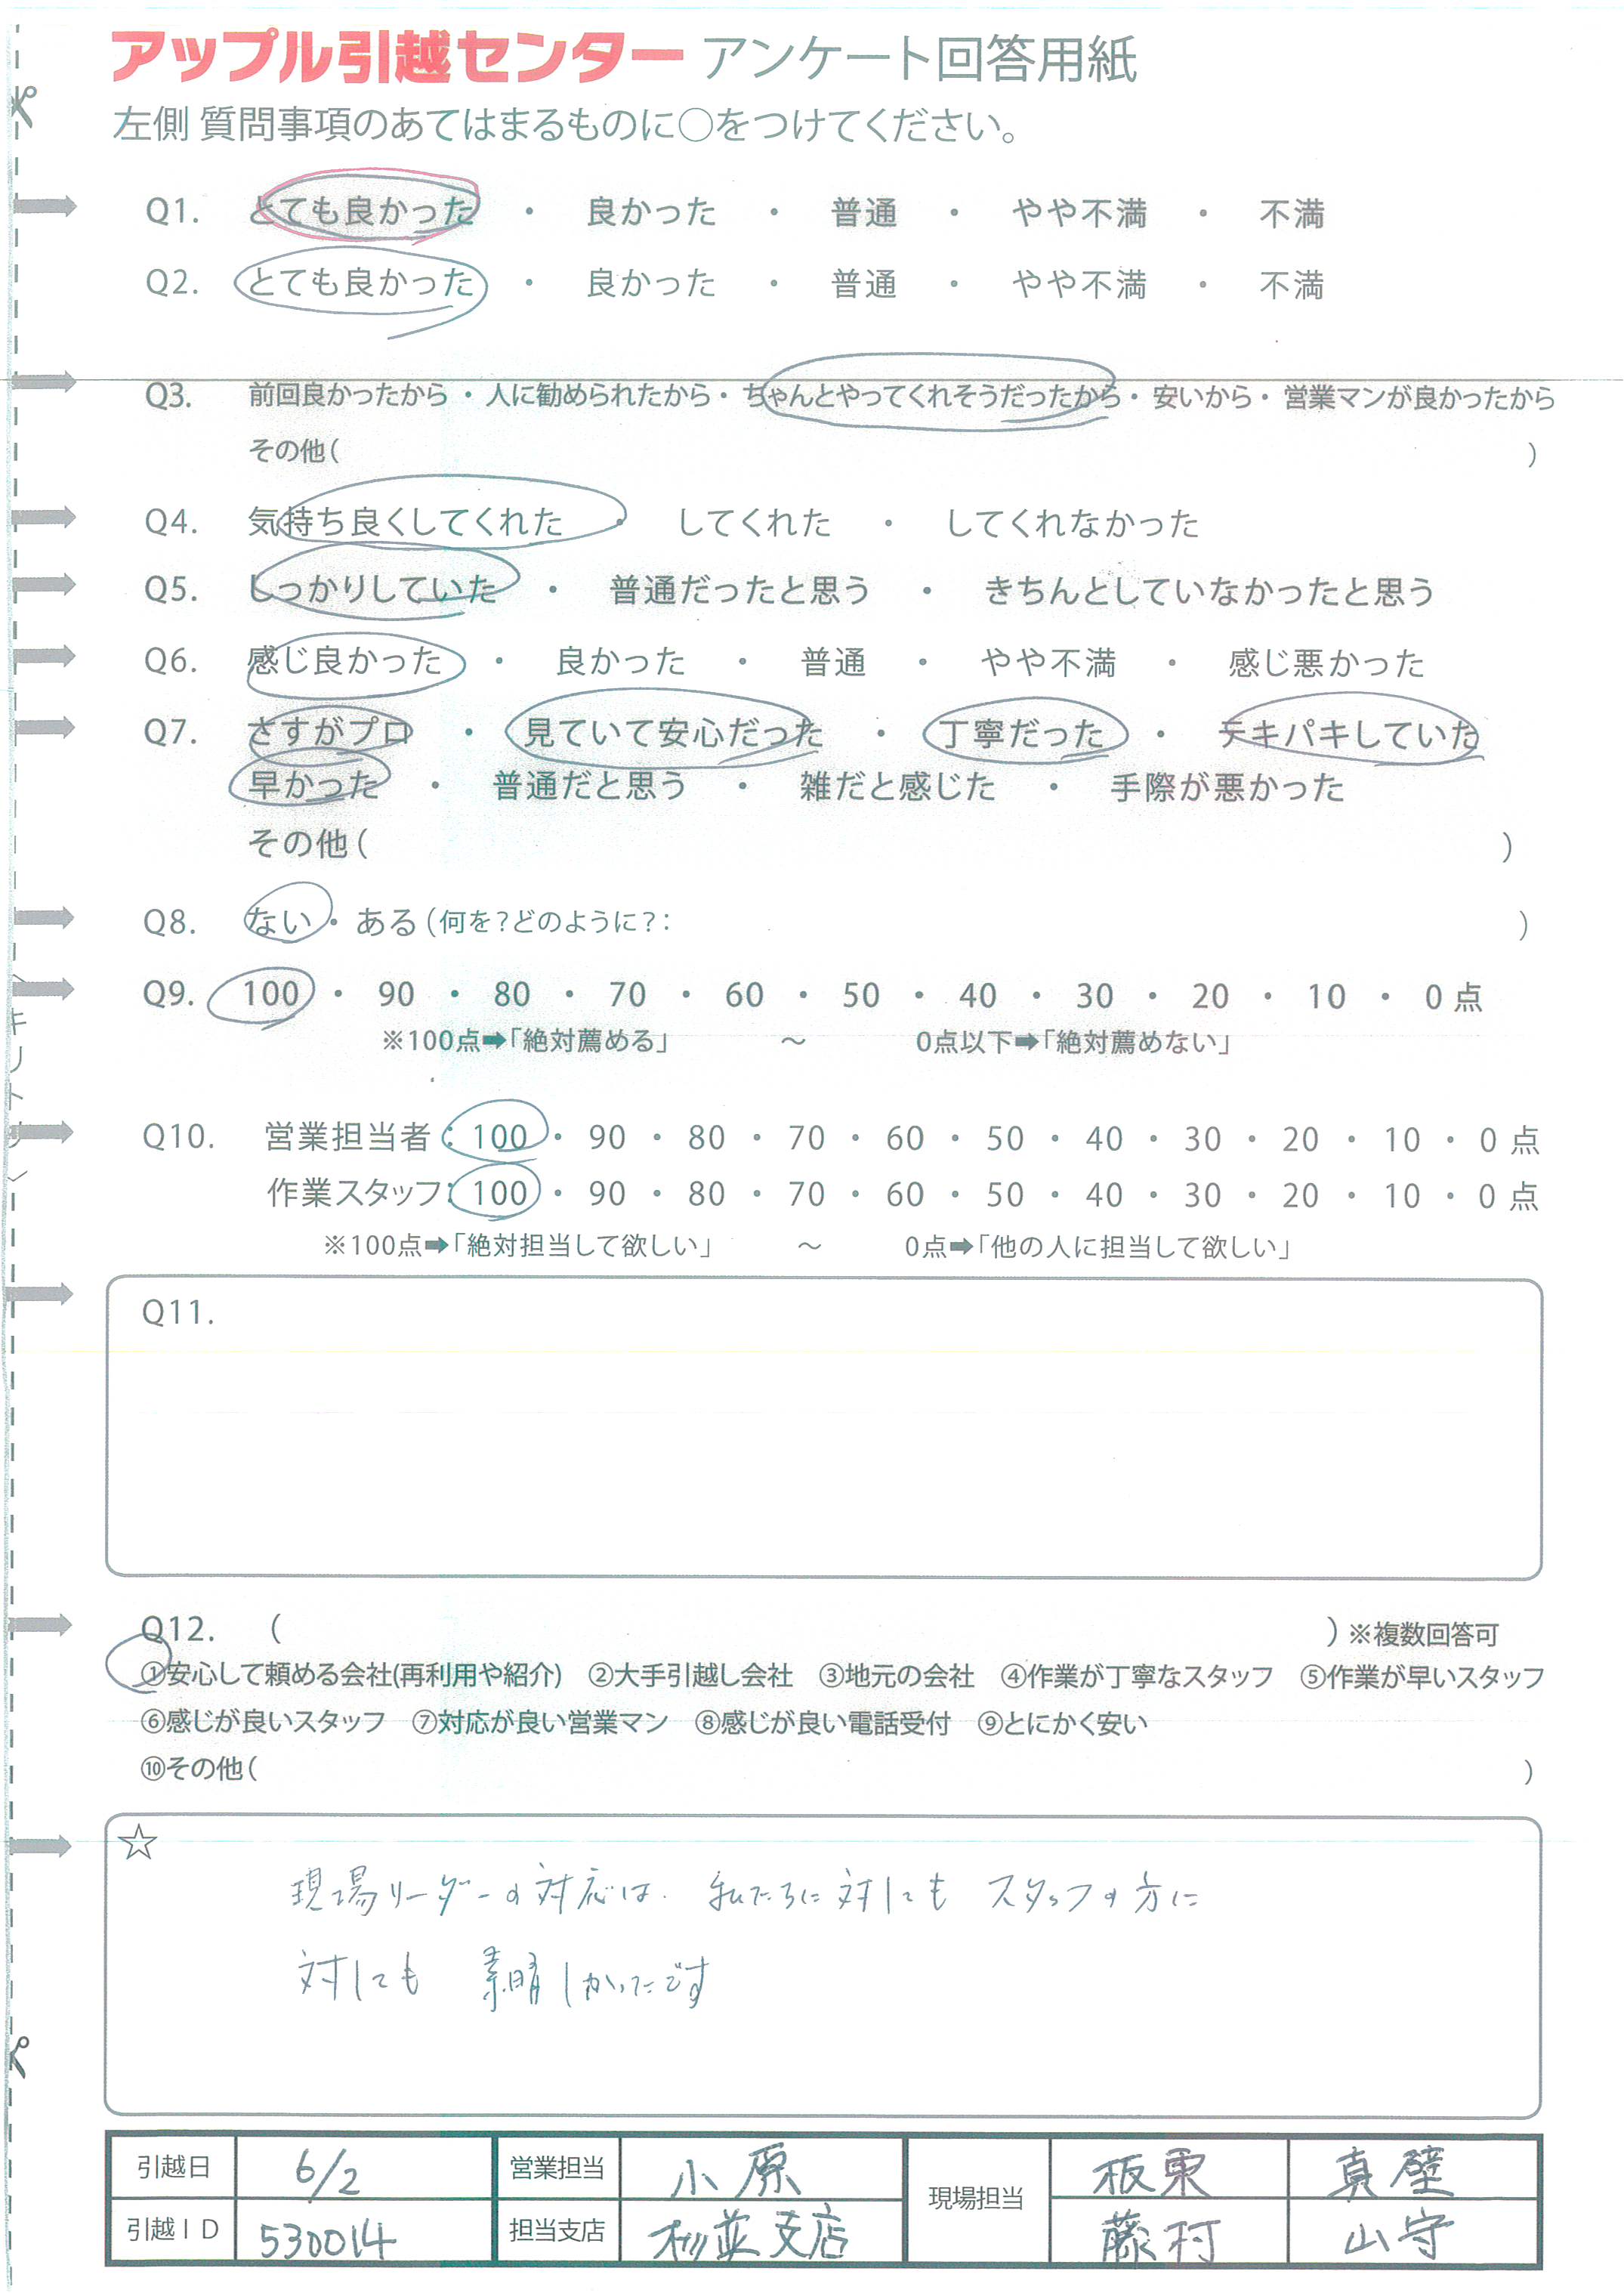 アップル引越センター アンケート回答用紙
左側 質問事項のあてはまるものに○をつけてください。
Q1. とても良かった ・ 良かった ・ 普通 ・ やや不満 ・ 不満
Q2. とても良かった ・ 良かった ・ 普通 ・ やや不満 ・ 不満
Q3. 前回良かったから・人に勧められたから・ちゃんとやってくれそうだったから・安いから・営業マンが良かったから
その他( )
Q4. 気持ち良くしてくれた ・ してくれた ・ してくれなかった
Q5. しっかりしていた ・ 普通だったと思う ・ きちんとしていなかったと思う
Q6. 感じ良かった ・ 良かった ・ 普通 ・ やや不満 ・ 感じ悪かった
Q7. さすがプロ ・ 見ていて安心だった ・ 丁寧だった ・ テキパキしていた
早かった ・ 普通だと思う ・ 雑だと感じた ・ 手際が悪かった
その他( )
Q8. ない・ ある(何を?どのように?: )
Q9. 100 ・ 90 ・ 80 ・ 70 ・ 60 ・ 50 ・ 40 ・ 30 ・ 20 ・ 10 ・ 0点
※100点➡「絶対薦める」 ～ 0点以下➡「絶対薦めない」
キリトリ
Q10. 営業担当者:100 ・ 90 ・ 80 ・ 70 ・ 60 ・ 50 ・ 40 ・ 30 ・ 20 ・ 10 ・ 0点
作業スタッフ:100 ・ 90 ・ 80 ・ 70 ・ 60 ・ 50 ・ 40 ・ 30 ・ 20 ・ 10 ・ 0点
※100点➡「絶対担当して欲しい」 ～ 0点➡「他の人に担当して欲しい」
Q11.
Q12. ( )※複数回答可
①安心して頼める会社(再利用や紹介) ②大手引越し会社 ③地元の会社 ④作業が丁寧なスタッフ ⑤作業が早いスタッフ
⑥感じが良いスタッフ ⑦対応が良い営業マン ⑧感じが良い電話受付 ⑨とにかく安い
⑩その他( )
☆
現場リーダーの対応は、私たちに対しても スタッフの方に
対しても 素晴しかったです
引越日 6/2 営業担当 小原 現場担当 板東 真壁
引越ID 530014 担当支店 杉並支店 藤村 山守